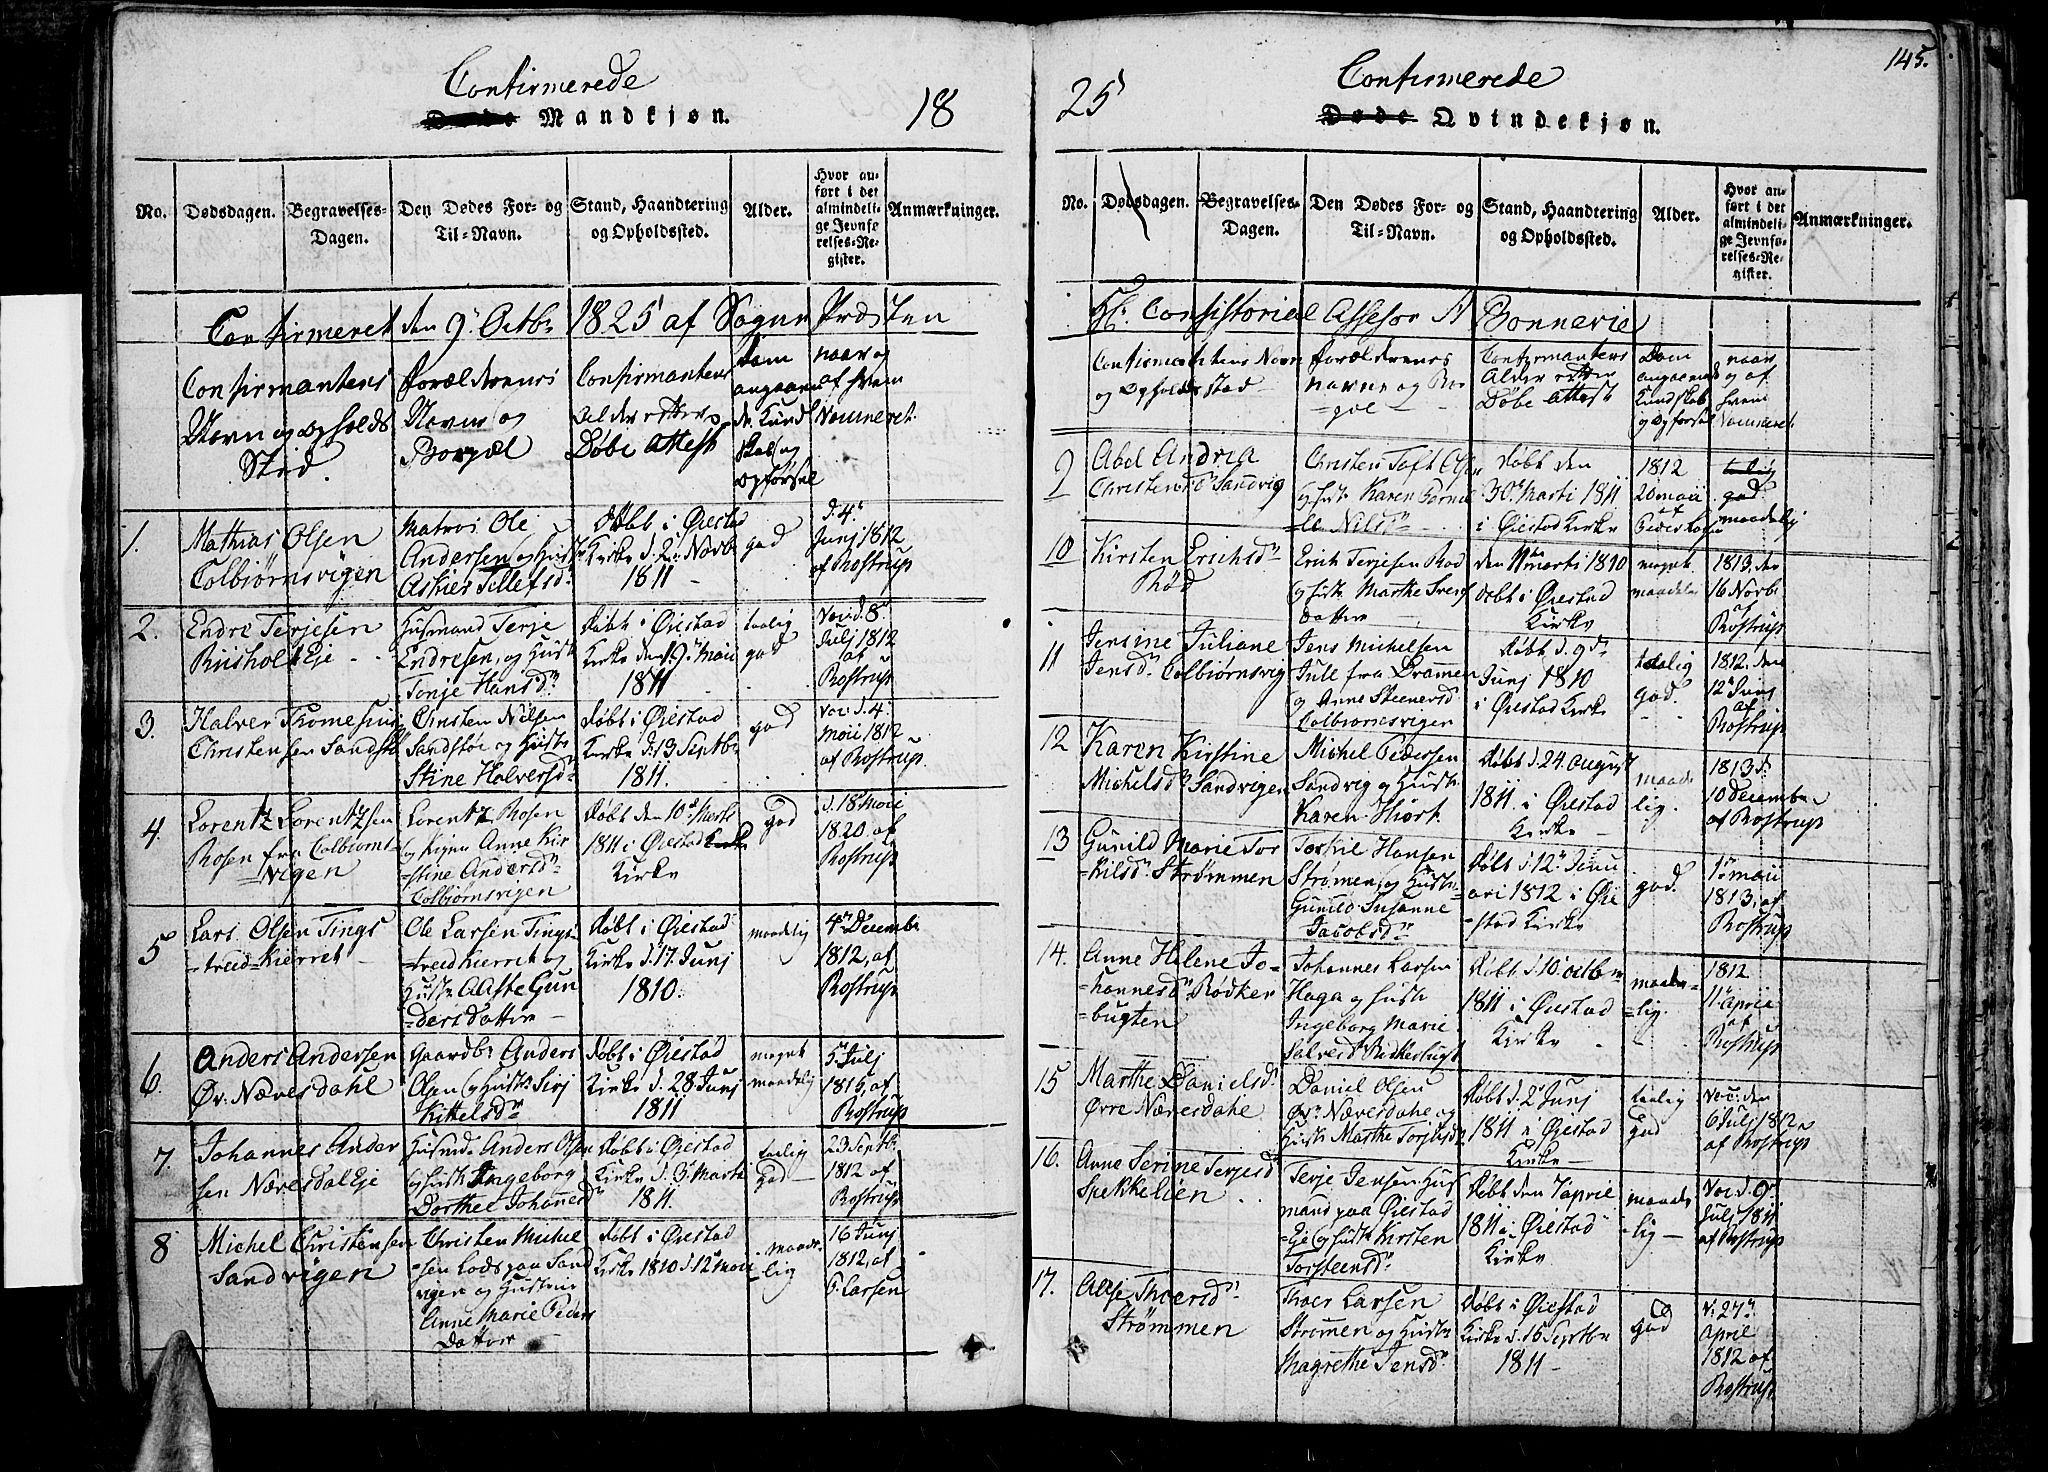 Confirmerede
Døde Mandkjøn.
18
No.
Dødsdagen.
Begravelses-
Dagen.
Den Dødes For- og
Til-Navn.
Stand, Haandtering
og Opholdssted.
Alder.
Hvor an-
ført i det
almindeli-
ge Jevnfø
relses-Re-
gister.
Anmærkninger.
Confirmeret den 9de Octbr 1825 af Sogne Præsten
Confirmantens
Navn og opholds
Sted.
Forældrenes
Navne og
Borgæl
Confirmantens
Alder efter
Døbe Attest
Dom
angaaen
de Kund
skab og
opførsel
naar og
af hvem
Vaccineret.
1.
Mathias Olsen
Colbiørnsvigen
Matros Ole
Andersen og Hust
Askier Tellefsd
døbt i Øiestad
Kirke d. 2 Novb
1811
god
d. 4
Junj 1812
af Rostrup
2.
Endre Terjesen
Riisholt Eje
Husmand Terje
Endresen, og Hust
Tonje Hansd
døbt i Øiestad
Kirke den 19 Maii
1811
taalig
god
Vac. d. 8
Julj 1812
af
Rostrup
3.
Halvor Thomesius
Christensen Sandstø
Christen Nilsen
Sandstøe og Hust
Stine Halversd
døbt i Øiestad
Kirke d. 13 Septbr
1811.
god
Vac. d. 4
Maii 1812
af Rostrup.
4.
Lorentz Lorentzsen
Rosen fra Colbiørns
vigen
Lorentz Rosen
og Pigen Anne Kir
stine Andersd
Colbiørnsvigen
døbt den 10 Marti
1811 i Øiestad Kirke
Kirke
god
d. 18 Maii
1820 af
Rostrup
5
Lars Olsen Tings
-treid-Kierret
Ole Larsen Tings
-treid Kierret og
Hust Aaste Gun
-ders datter
døbt i Øiestad
Kirke d. 17. Junj
1810.
maadelig
4 Decembr
1812, af
Rostrup
6.
Anders Andersen
Øv. Næversdahl
Gaardbr Anders
Olsen og Hust Sirj
Kittelsd
døbt i Øiestad
Kirke d. 28 Junj
1811
meget
maadelig
5 Julj
1815, af
Rostrup
7.
Johannes Ander
sen Næversdal Eje
Husmd. Anders Olsen
og Hust Ingeborg
Dorthea Johannesd
døbt i Øiestad
Kirke d. 3 Marti
1811.
taalig
god
23 Septb.
1812 af
Rostrup
8
Michel Christensen
Sandvigen
Christen Michel
-sen Lods paa Sand
vigen og Hustrue
Anne Marie Peders
Datter
døbt i Øiestad
Kirke 1810 d. 12 Maii
maade-
-lig
16 Junj
1812, af
P. Larsen
145.
25
Confirmerede
Døde Qvindekjøn.
No.
Dødsdagen.
Begravelses-
Dagen.
Den Dødes For- og
Til-Navn.
Stand, Haandtering
og Opholdssted.
Alder.
Hvor an-
ført i det
almindeli-
ge Jevnfø-
relses-Re-
gister.
Anmærkninger.
Hr. Consistorial Assessor A Bonnevie
Confirmantens Navn
og Opholds stæd
Forældrenes
navne og Bor
gæl
Confirmantens
Alder efter
Døbe Attest
Dom
angaaende
Kundskab
og Opførsel
naar
og af
hvem
Vaccineret.
9
Abel Andrea
Christensd Sandvig
Christen Toft Olsen
og Hust Karen Perni
-le Nilsd
døbt den
30 Marti 1811
i Øiestad Kirke
1812
20 Maii
af
taalig
god
maadelig
10
Kirsten Erichsd
Rød
Erich Terjesen Rød
og Hust Marthe Svens
datter
den 11 Marti 1810
døbt i Øiestad
Kirke
meget
maadelig
1813. den
16 Novb
af
Rostrup
11
Jensine Juliane
Jensd. Colbiørnsvig
Jens Michelsen
Juell fra Dramen
og Anne Steenersd
Colbiørnsvigen
døbt d. 9 d.
Junj 1810
i Øiestad Kirke
taalig
god.
1812. den
12 Junj
af
Rostrup
12
Karen Kirstine
Michelsd Sandvigen
Michel Pedersen
Sandvig og Hust
Karen Hiort.
døbt d. 24. August
1811 i Øiestad
Kirke
maade
lig.
1813 d.
10 Decembr
af Rostrup
13
Gunild Marie Tor
-kilsd Strømmen
Torkil Hansen
Strømen, og Hust
Gunild Susanne
Jacobsd
døbt d. 12 Janu
ari 1812 i Øie
-stad Kirke
god.
1 Maii
1813, af
Rostrup
14.
Anne Helene Jo-
-hannesd Rødker
bugten
Johannes Larsen
Haga og Hust
Ingeborg Marie
døbt d. 10 octbr
1811 i Øiestad
Kirke
maade-
-lig.
1812
11 April
af
Rostrup
15
Marthe Danielsd.
Øvre Næversdahl
Daniel Olsen
Øv. Næversdahl og
Hust Marthe Torjusd
døbt d. 2 Junj
1811 i Øiestad
Kirke
taalig
god
Vac. den
6 Julj 1812
af Rostrup
16.
Anne Serine Terjesd
Spekkelien
Terje Jensen Hus
mand paa Øiestad
-Eje og Hust Kirsten
Torsteensd
døbt den 7 April
1811 i Øiestad
Kirke
maade
-lig
Vac. d. 9
Julj 1811
af Rostrup
17.
Aasje Thoersd
Strømmen
Thoer Larsen
Strømen og Hust
Magrethe Jensd.
døbt i Øiestad
Kirke d. 15 Septbr
1811
god
V. 27
April
1812 af
Rostrup